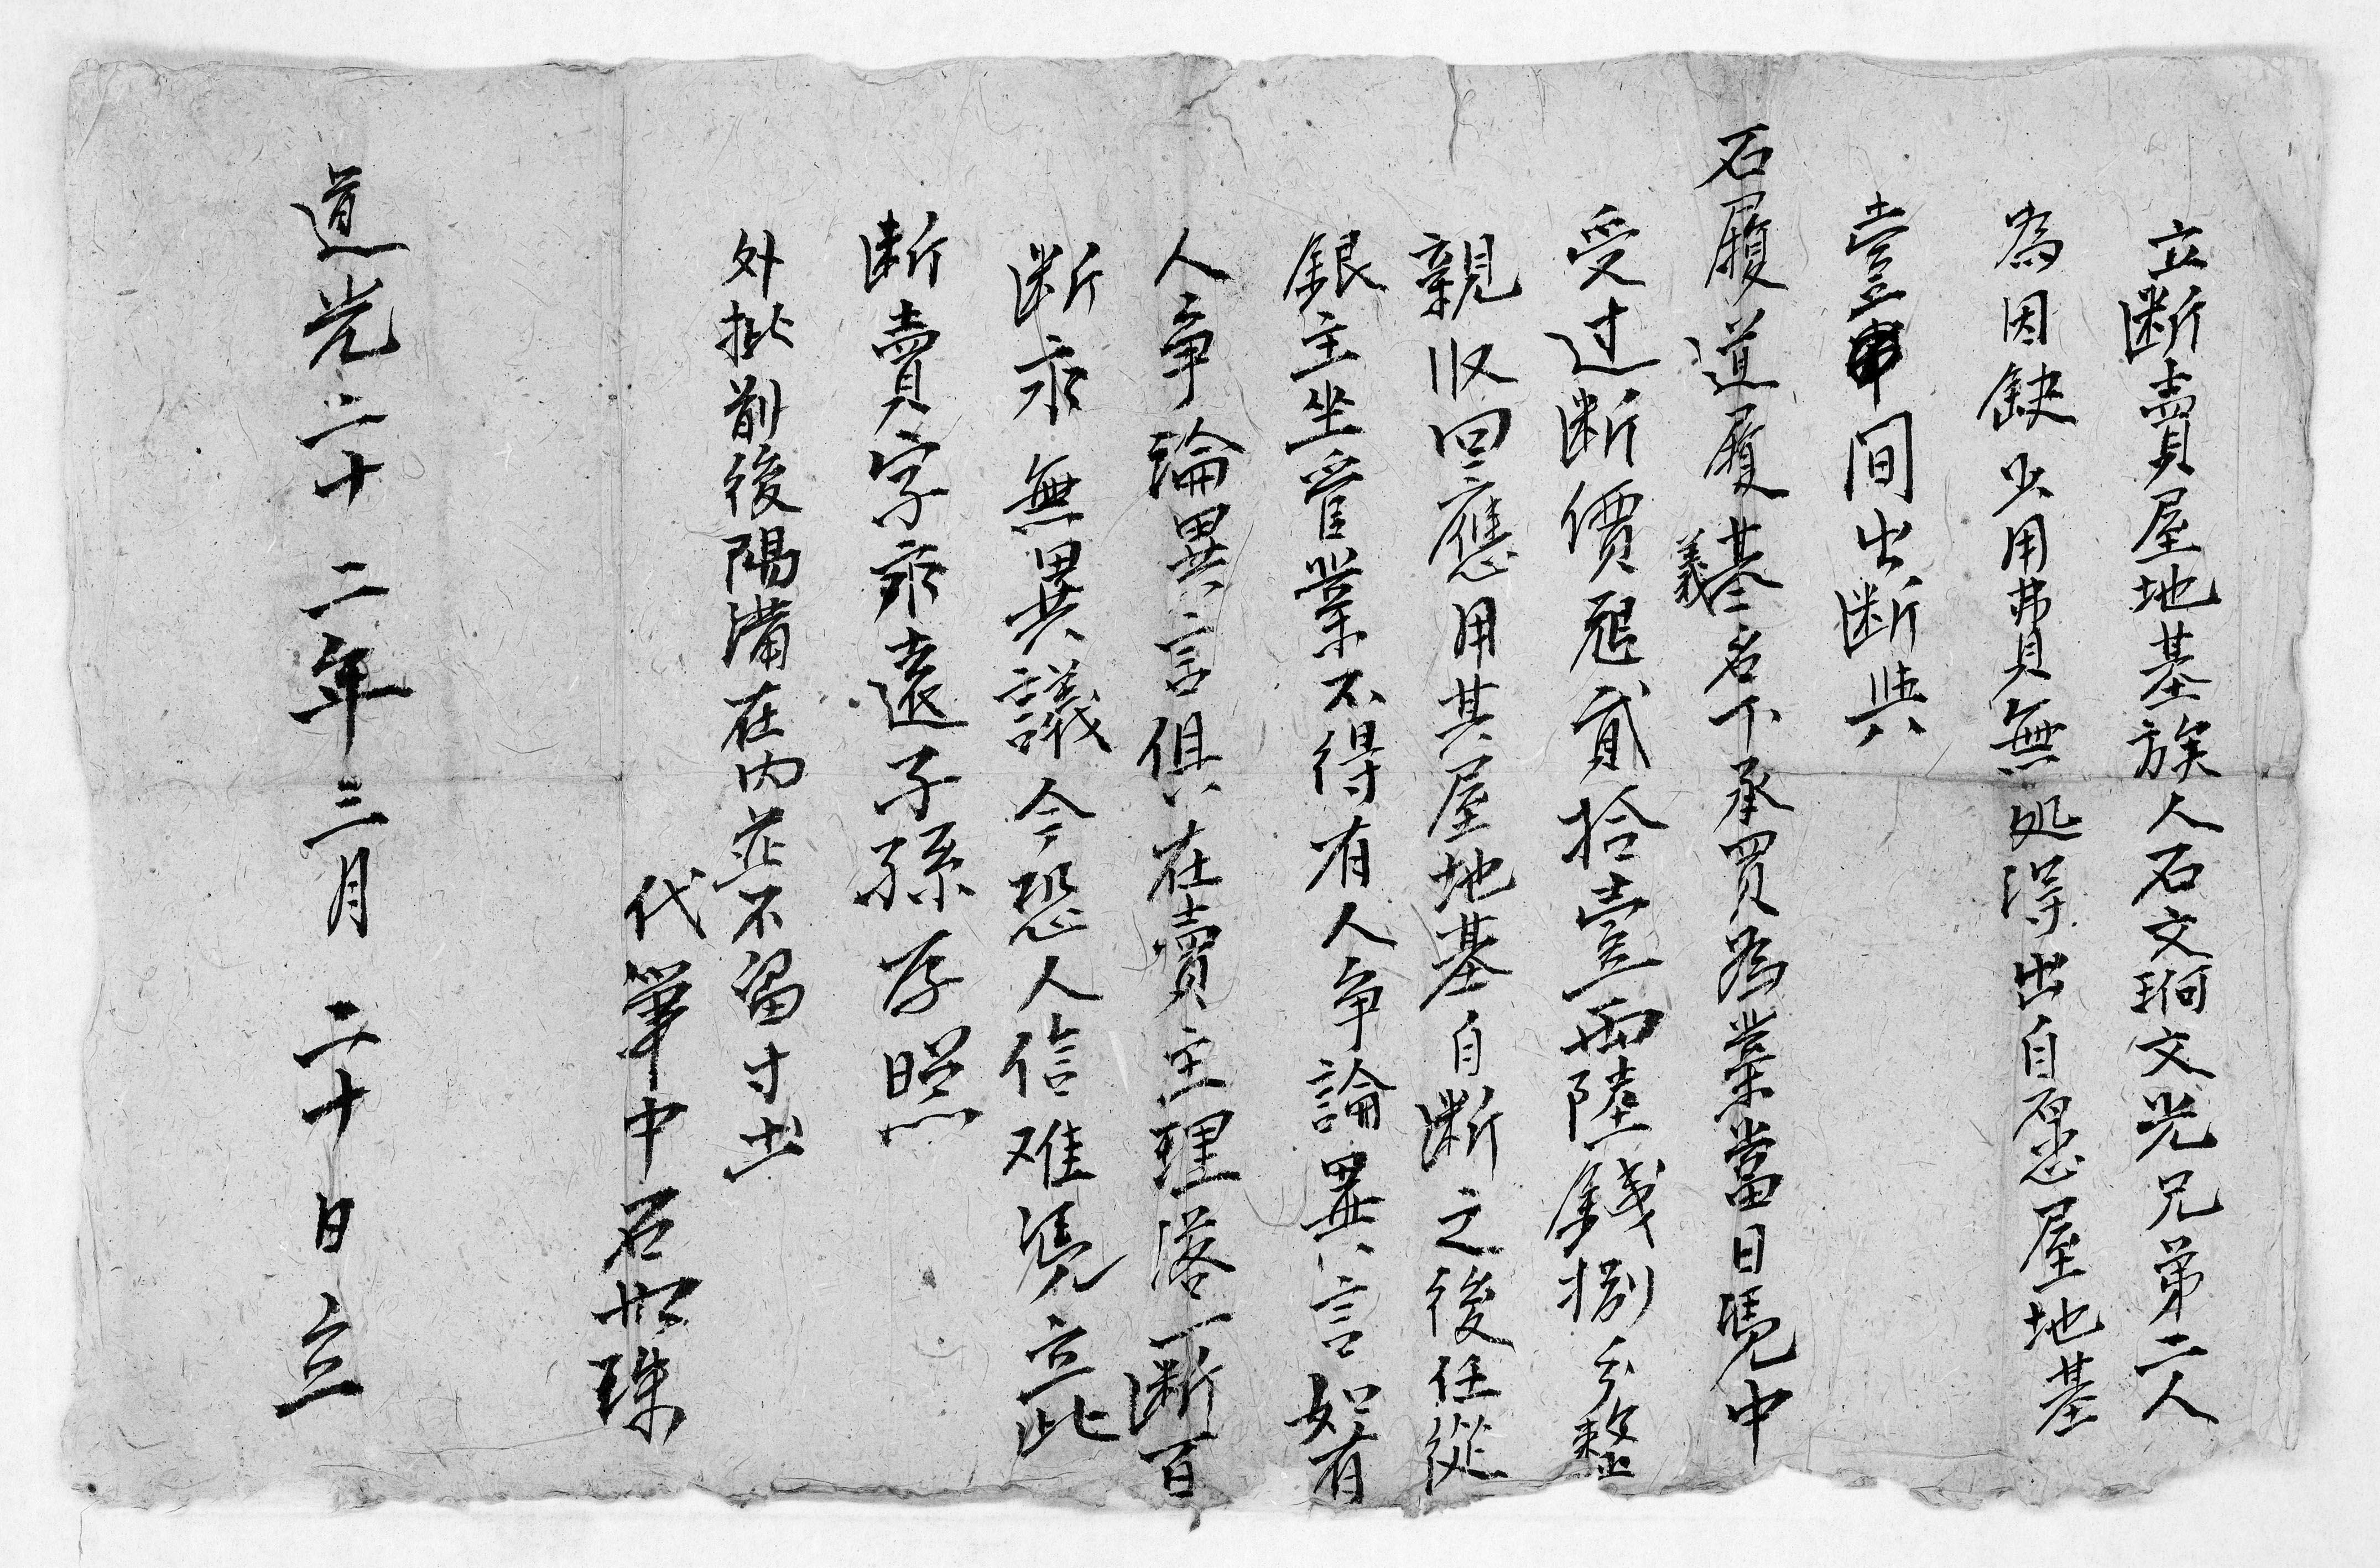 立断賣屋地基族人石文珦文光兄弟二人
為因缺少用費無処淂出自愿屋地基
壹間出断與
石履道履基義名下承買為業當日凴中
受过断價紋貳拾壹両陸錢捌分整
親収回應用其屋地基自断之後任從
銀主坐管業不得有人争論異言如有
人争論異言俱在賣主理落一断百
断永無異議今恐人信难凴立此
断賣字永遠子孫存照
外批前後陽溝在内並不留寸土
代筆中石如珠
道光二十二年三月二十日立